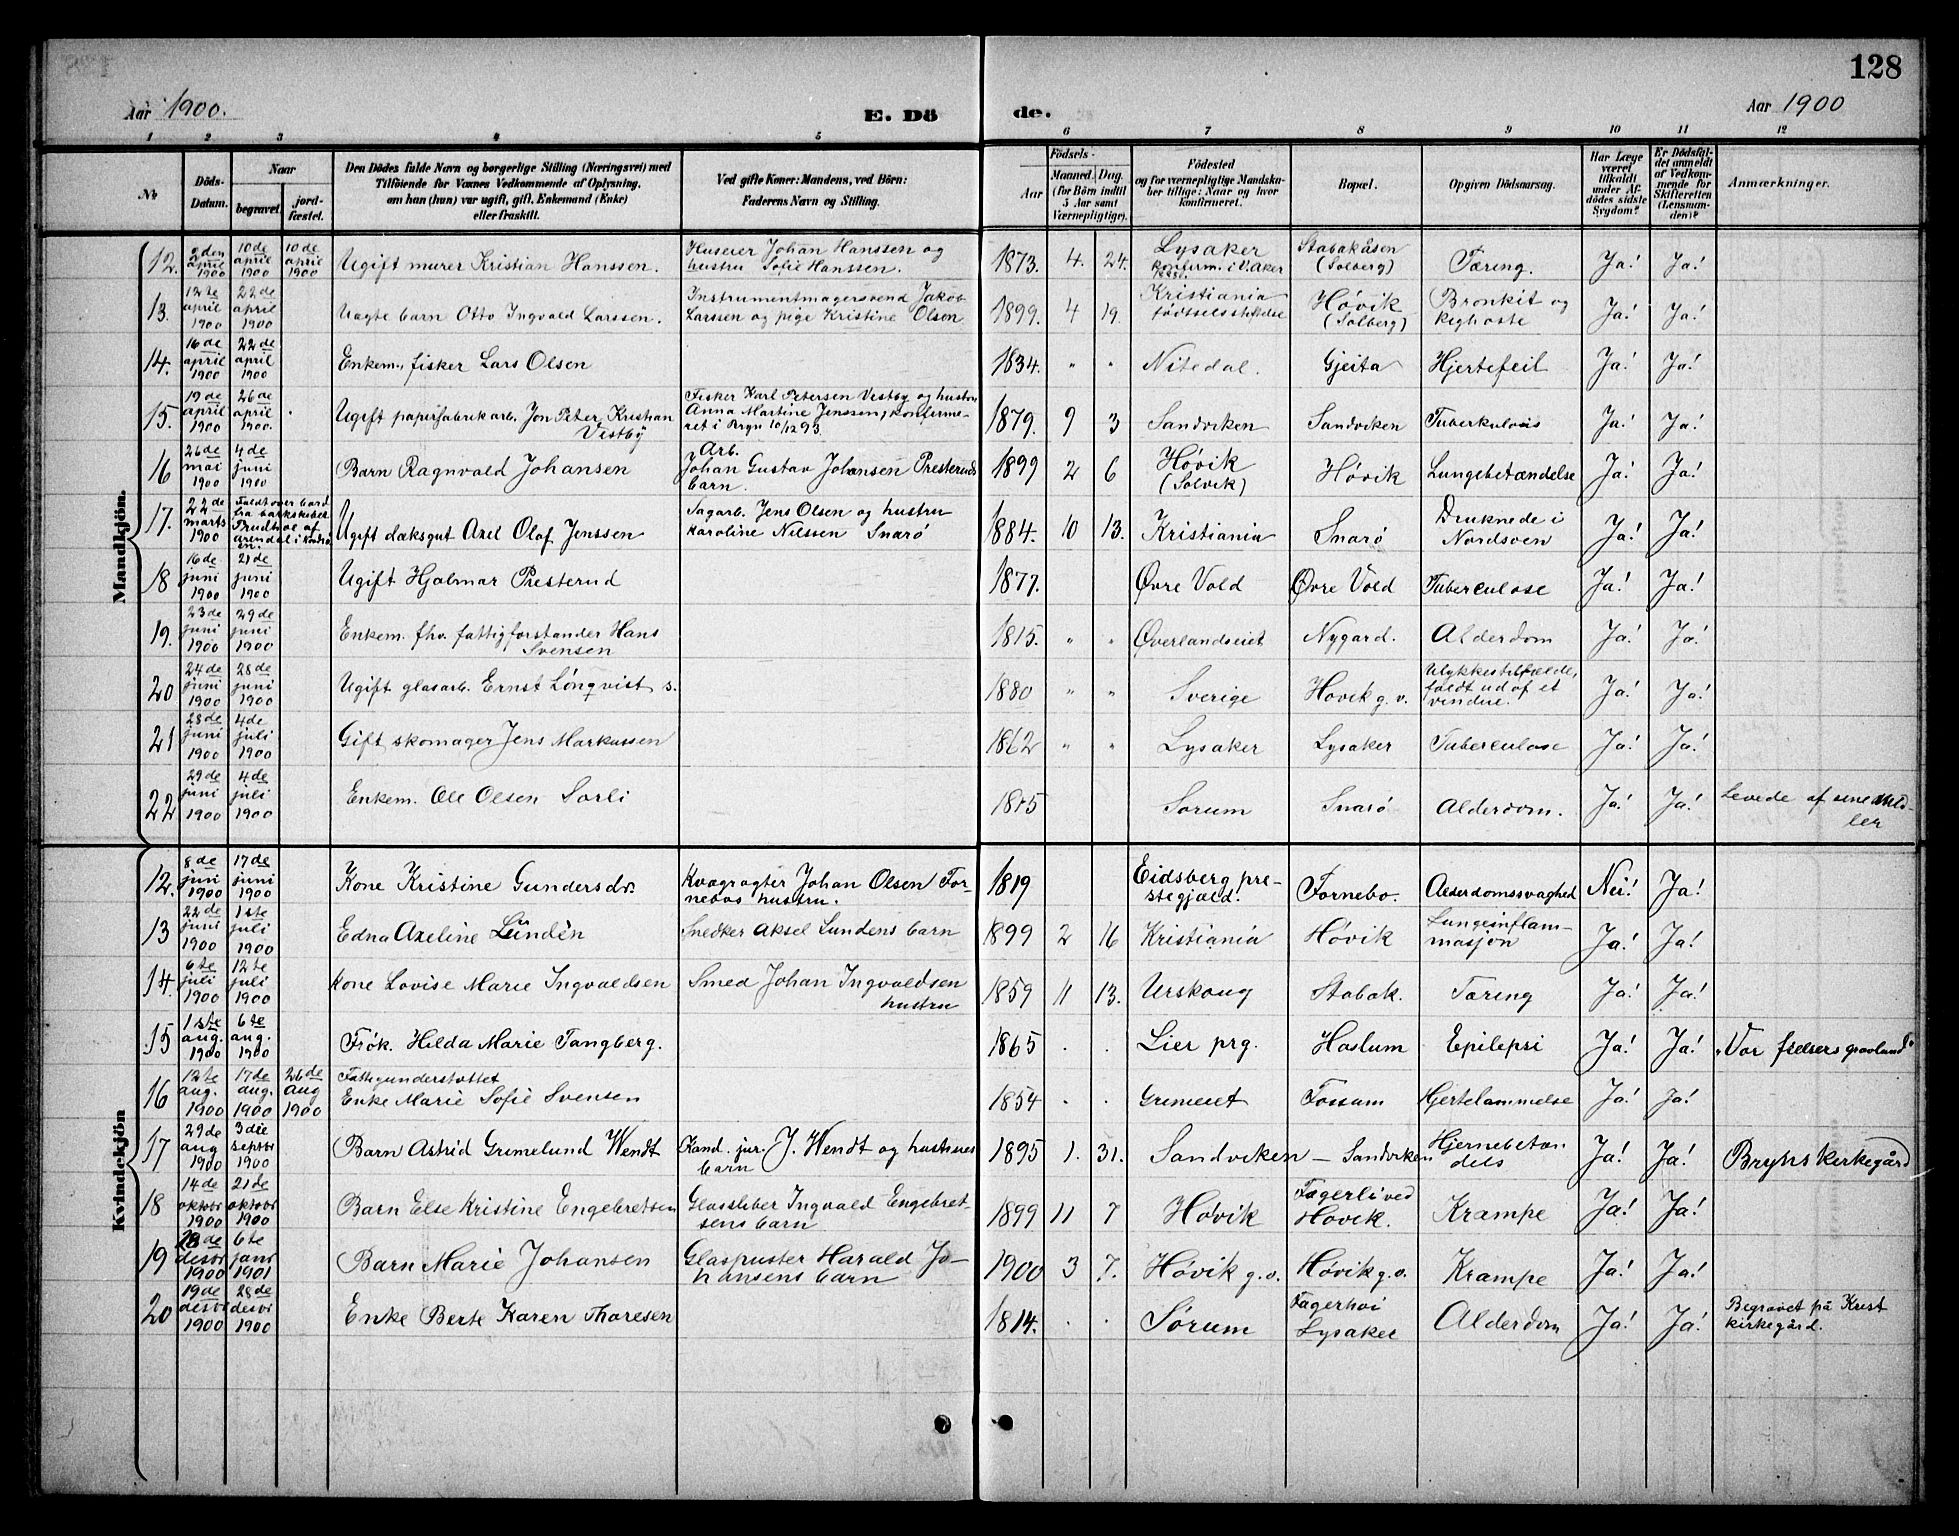 128
Aar 1900.
E. Dö
de.
Aar 1900
1 2 3 4 5 6 7 8 9 10 11 12
№
Döds-Datum.
Naar
begravet.
jord-fæstet.
Den Dödes fulde Navn og borgerlige Stilling (Næringsvei) med
Tilföiende for Voxnes Vedkommende af Oplysning,
om han (hun) var ugift, gift, Enkemand (Enke)
eller fraskilt.
Ved gifte Koner: Mandens, ved Börn:
Faderens Navn og Stilling.
Födsels-
Aar
Maaned. Dag.
(for Börn indtil
5 Aar samt
Værnepligtige).
Födested
og for værnepligtige Mandska-
ber tillige: Naar og hvor
konfirmeret.
Bopæl.
Opgiven Dödsaarsag.
Har Læge
været
tilkaldt
under Af-
dödes sidste
Sygdom?
Er Dödsfal-
det anmeldt
af Vedkom-
mende for
Skifteretten
(Lensman-
den)?
Anmærkninger.
Mandkjön.
12. 2den april 1900 10de april 1900 10de april 1900 Ugift murer Kristian Hanssen. Huseier Johan Hanssen og hustru Sofie Hanssen. 1873. 4. 24. Lysaker konfirm. i V. Aker Stabakåsen (Solberg) Tæring. Ja! Ja!
13. 12te april 1900 22de april 1900 Uagte barn Otto Ingvald Larssen. Instrumentmagersvend Jakob Larssen og pige Kristine Olsen 1899. 4 19. Kristiania fødselsstiftelse Høvik (Solberg) Bronkit og kighoste Ja! Ja!
14. 16de april 1900 22de april 1900 Enkem., fisker Lars Olsen 1834. " " Nitedal. Gjeita Hjertefeil Ja! Ja!
15. 19de april 1900 26de april 1900. Ugift papirfabrikarb. Jon Peter Kristian Vestby Fisker Karl Petersen Vestby og hustru Anna Martine Jenssen, konfirmeret i Bryn 10/12 93. 1879. 9 3 Sandviken Sandviken Tuberkulosis Ja! Ja!
16 26de mai 1900 4de juni 1900 Barn Ragnvald Johansen Arb. Johan Gustav Johansen Presteruds barn. 1899 2 6 Høvik (Solvik) Høvik Lungebetændelse Ja! Ja!
17. 22de marts 1900 Faldt over bord fra barkskibet Prudhoe af Arendal i Ugift dæksgut Axel Olaf Jenssen Sagarb. Jens Olsen og hustru Karoline Nilssen Snarø 1884. 10 13. Kristiania Snarø Druknede i Nordsøen Ja! Ja!
18 16de juni 1900 21de juni 1900 Ugift Hjalmar Presterud 1877. Øvre Vold Øvre Vold Tuberculose Ja! Ja!
19. 23de juni 1900 29de juni 1900 Enkem. fhv. fattigforstander Hans Svensen 1815. " " Øverlandseiet Nygard. Alderdom Ja! Ja!
20 24de juni 1900 28de juni 1900 Ugift glasarb. Ernst Lönqvist s. 1880 " " Sverige Høvik g. v. Ulykkestilfælde, faldt ud af et vindue. Ja! Ja!
21 28de juni 1900 4de juli 1900 Gift skomager Jens Markussen 1862 " " Lysaker Lysaker Tuberculose Ja! Ja!
22 29de juni 1900 4de juli 1900 Enkem. Ole Olsen Sorli 1815 Sorum Snarø Alderdom. Ja! Ja! Levede af sine midler
Kvindekjön
12. 8de juni 1900 17de juni 1900 Kone Kristine Gundersdr. Kvægrøgter Johan Olsen Fornebos hustru. 1819 Eidsberg prestegjæld. Fornebo. Alderdomssvaghed Nei! Ja!
13 22de juni 1900 1ste juli 1900 Edna Axeline Lündén Snedker Aksel Lundens barn 1899 2 16 Kristiania Høvik Lungeinflammasjon Ja! Ja!
14. 6te juli 1900 12te juli 1900 Kone Lovise Marie Ingvaldsen Smed Johan Ingvaldsen hustru 1859 11 13. Urskoug Stabæk. Tæring Ja! Ja!
15 1ste aug. 1900 6te aug. 1900 Frök. Hilda Marie Tangberg. 1865 . . Lier prg. Haslum Epilepsi Ja! Ja! "Vor frelsers gravlund"
16 12te aug. 1900 17de aug. 1900 26de aug 1900 Fattigunderstøttet Enke Marie Sofie Svensen 1854 . . Grimeiet Fossum Hjertelammelse Ja! Ja!
17 29de aug 1900 3die septbr 1900 Barn Astrid Grimelund Wendt Kand. jur. J. Wendt og hustrues barn 1895 1. 31. Sandviken – Sandviken Hjernebetændels Ja! Ja! Bryns kirkegård
18 14de oktobr 1900 21de oktobr 1900 Barn Else Kristine Engebretsen Glassliber Ingvald Engebretsens barn 1899 11 7 Høvik Fagerli ved Høvik. Krampe Ja! Ja!
19 28de desbr 1900 6te janr 1901 Barn Marie Johansen Glaspuster Harald Johansens barn 1900 3 7. Høvik g.v. Høvik g.v. Krampe Ja! Ja!
20 19de desbr 1900 28de desbr 1900 Enke Berte Karen Thoresen 1814. . . Sørum Fagerhøi Lysaker Alderdom Ja! Ja! Begravet på Krist kirkegård.